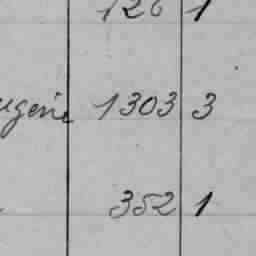 126 1
1303 3
352 1